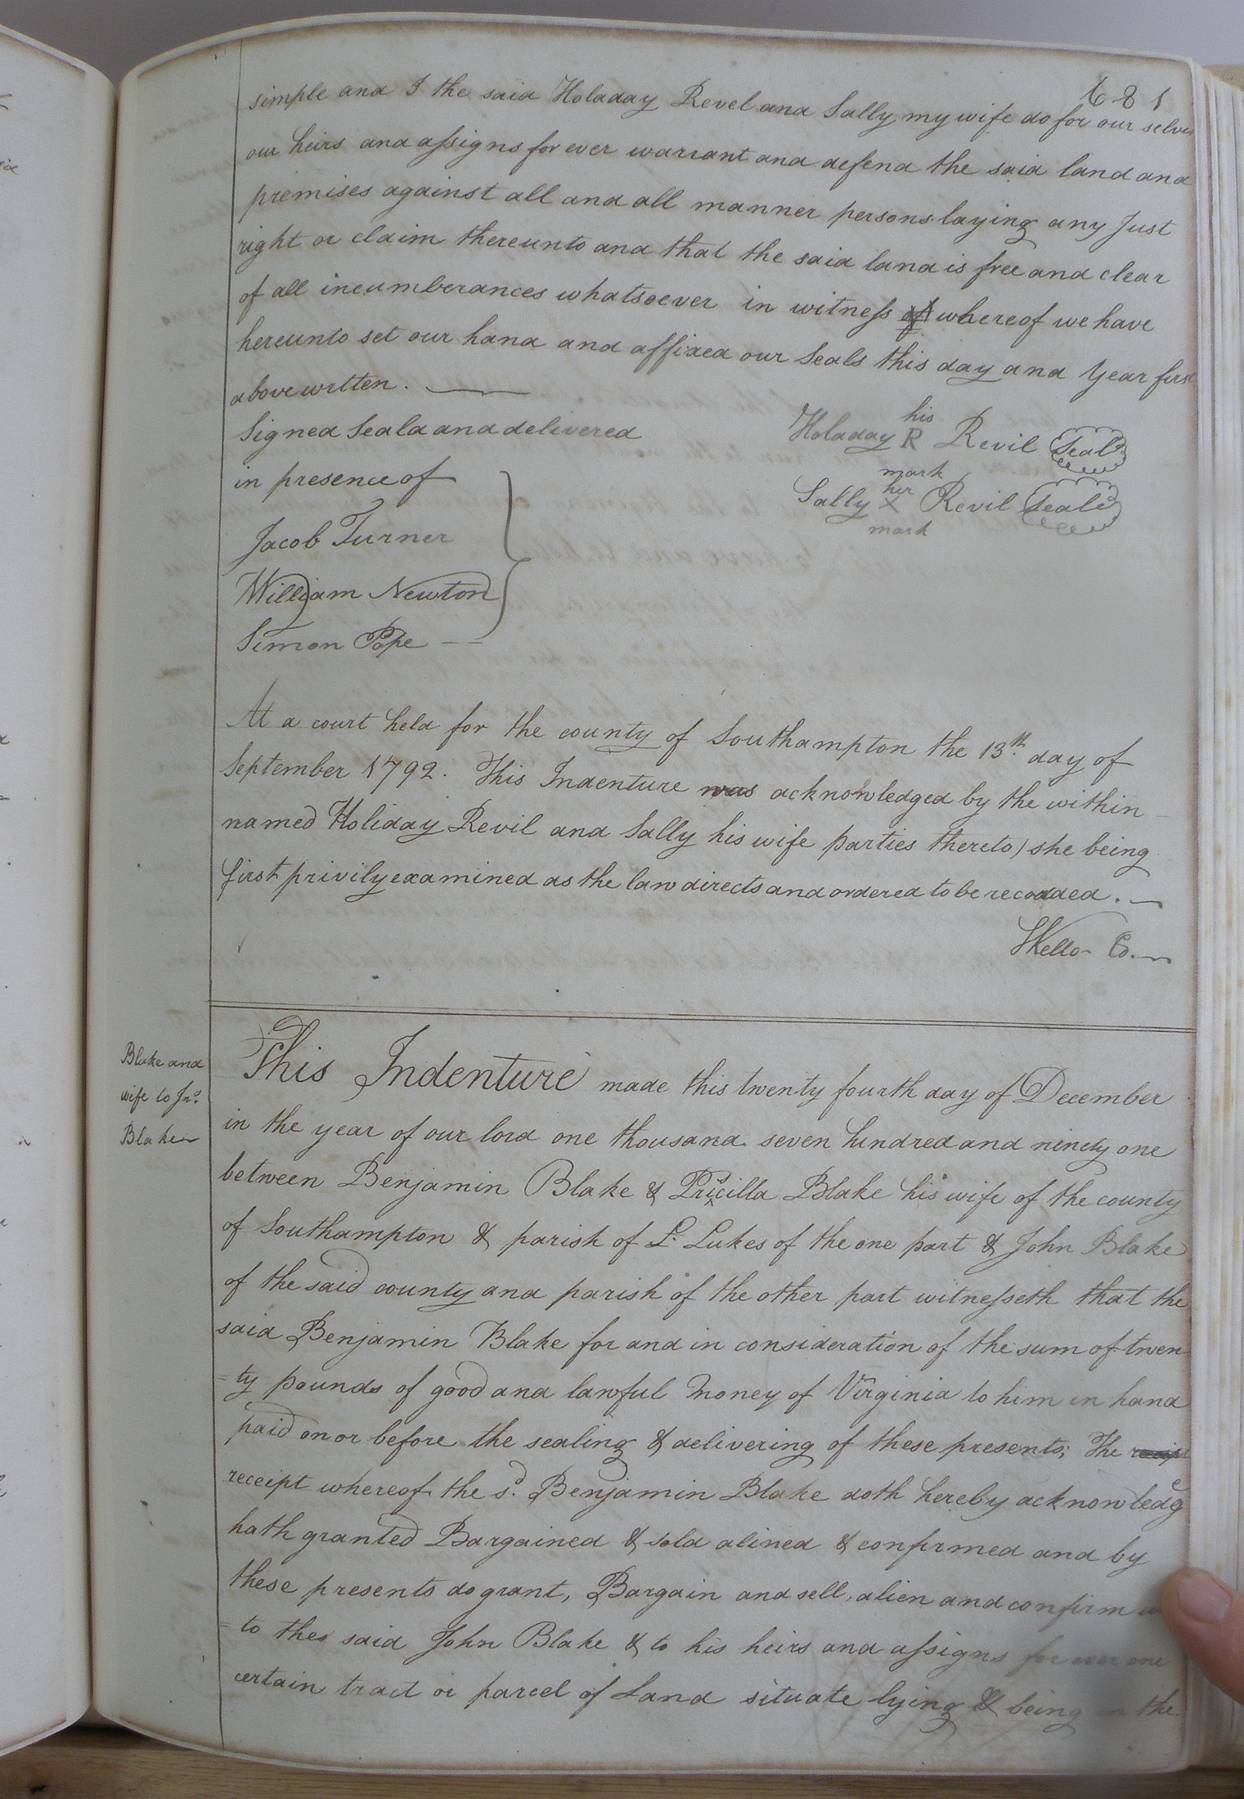 681
simple and I the said Holaday Revel and Sally my wife do for our selves
our heirs and assigns for ever warrant and defend the said land and
premises against all and all manner persons laying any Just
right or claim thereunto and that the said land is free and clear
of all incumberances whatsoever in witness of whereof we have
hereunto set our hand and affixed our Seals this day and Year first
above written.
Signed Seald and delivered
in presence of
Jacob Turner
William Newton
Simon Pope
his
Holaday R Revil Seal
mark
her
Sally X Revil Seal
mark
At a court held for the county of Southampton the 13th day of
September 1792. This Indenture was acknowledged by the within
named Holiday Revil and Sally his wife parties thereto) she being
first privily examined as the law directs and ordered to be recorded.
Blake and
wife to Jno.
Blake
This Indenture made this twenty fourth day of December
in the year of our lord one thousand seven hundred and ninety one
between Benjamin Blake & Pricilla Blake his wife of the county
of Southampton & parish of St. Lukes of the one part & John Blake
of the said county and parish of the other part witnesseth that the
said Benjamin Blake for and in consideration of the sum of twen
=ty pounds of good and lawful money of Virginia to him in hand
paid on or before the sealing & delivering of these presents; The
receipt whereof the sd. Benjamin Blake doth hereby acknowledge
hath granted Bargained & sold alined & confirmed and by
these presents do grant, Bargain and sell, alien and confirm
=to the said John Blake & to his heirs and assigns for ever one
certain tract or parcel of Land situate lying & being in the